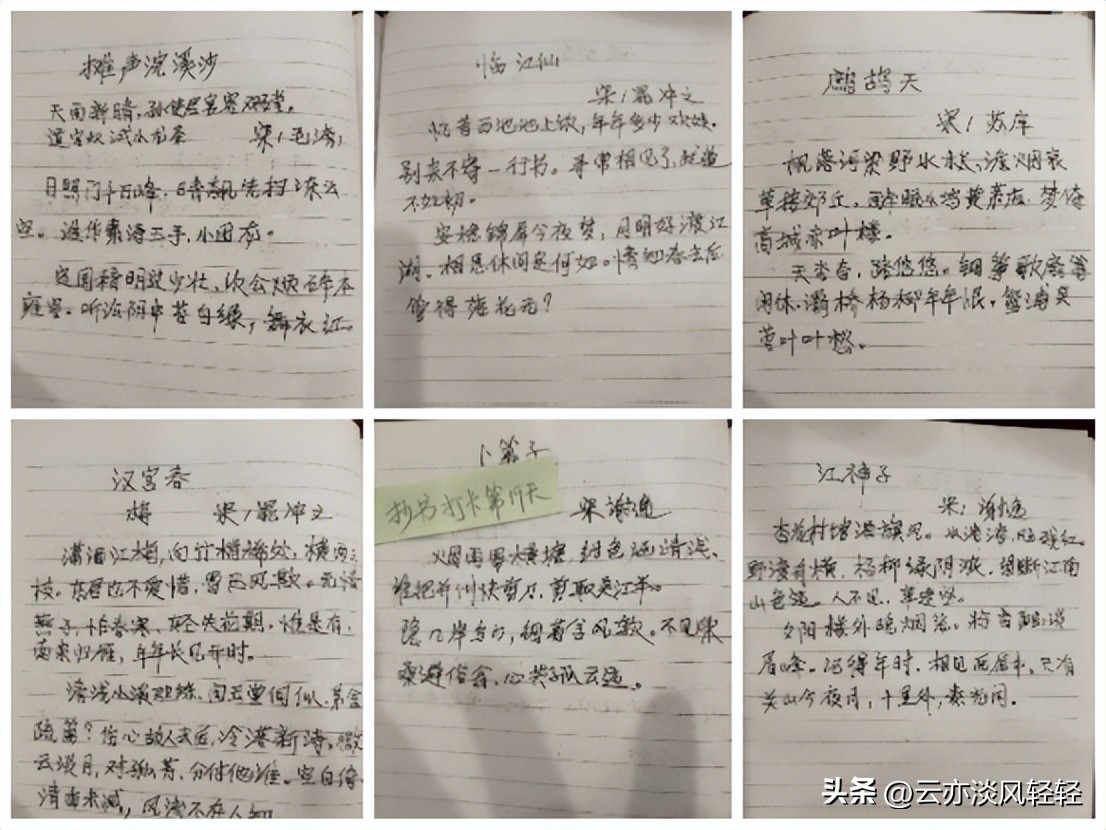 摊声浣溪沙
天雨新晴，孙使君宴客双石堂，
遣官奴试小龙茶 宋/毛滂
日照门前千万峰，晴飙先扫冻云
空。谁作素涛翻玉手，小团龙。
定国精明过少壮，次公烦碎本
雍容。听讼阴中苔自绿，舞衣红。
临江仙
宋/晁冲之
忆昔西池池上饮，年年多少欢娱。
别来不寄一行书。寻常相见了，犹道
不如初。
安稳锦屏今夜梦，月明好渡江
湖。相思休问定何如。情知春去后
管得落花无？
鹧鸪天
宋/苏庠
枫落河梁野水秋，澹烟衰
草接郊丘。醉眠小坞黄茅店，梦倚
高城赤叶楼。
天杳杳，路悠悠。钿筝歌扇等
闲休。灞桥杨柳年年恨，鸳浦芙
蓉叶叶愁。
汉宫春
梅 宋/晁冲之
潇洒江梅，向竹梢稀处，横两三
枝。东君也不爱惜，雪压风欺。无情
燕子，怕春寒、轻失前期。惟是有，
南来归雁，年年长见开时。
清浅小溪如练，问玉堂何似，茅舍
疏篱？伤心故人去后，冷落新诗。微
云淡月，对孤芳、分付他谁。空自倚，
清香未减，风流不在人知
卜算子
抄书打卡第19天
宋 谢逸
烟雨幂横塘，绀色涵清浅。
谁把并州快剪刀，剪取吴江半。
隐几岸乌巾，细葛含风软。不见柴
桑避俗翁，心共孤云远。
江神子
宋/谢逸
杏花村馆酒旗风。水溶溶，飏残红。
野渡舟横，杨柳绿阴浓。望断江南
山色远，人不见，草连空。
夕阳楼外晚烟笼。粉香融，淡
眉峰。记得年时，相见画屏中。只有
关山今夜月，千里外，素光同。
头条 @云亦淡风轻轻